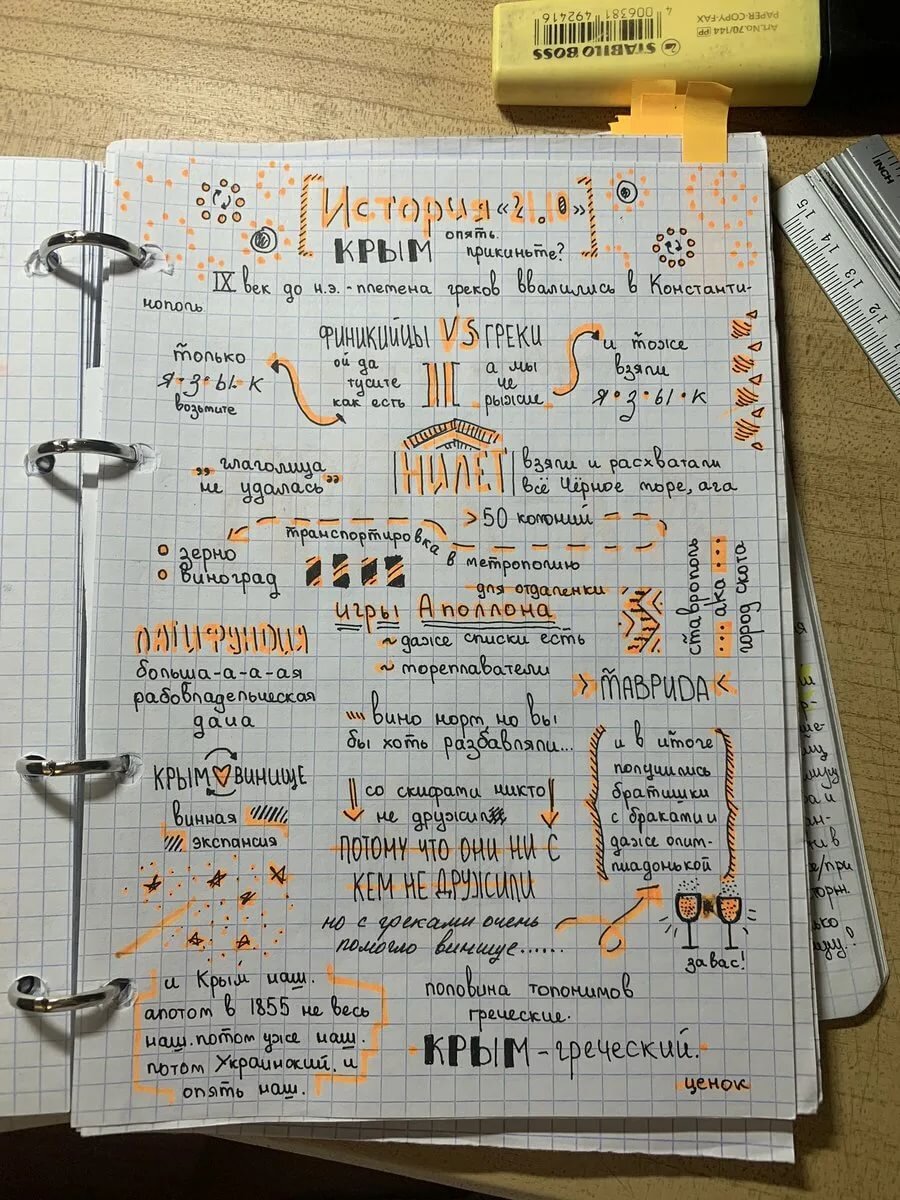 STABILO BOSS
Art.No.70/144 PP
PAPER-COPY-FAX
4 006381 492416
INCH
15
14
13
12
История «21.10»
КРЫМ опять.
прикиньте?
IX век до н.э. - племена греков ввалились в Константи-
нополь
ФИНИКИЙЦЫ VS ГРЕКИ
только
я·з·ы·к
возьмите
ой да
тусите
как есть
а мы
че
рыжие
и тоже
взяли
я·з·ы·к
„глаголица
не удалась"
МИЛЕТ
взяли и расхватали
всё Чёрное море, ага
>50 колоний
транспортировка в метрополию
зерно
виноград
для отдаленки
ставрополь
ака
город скота
игры Аполлона
~ даже списки есть
~ мореплаватели
ЛАТИФУНДИЯ
больша-а-а-ая
рабовладельческая
дача
ТАВРИДА
вино норм, но вы
бы хоть разбавляли...
КРЫМ ♡ ВИНИЩЕ
винная
экспансия
со скифами никто
не дружил
ПОТОМУ ЧТО ОНИ НИ С
КЕМ НЕ ДРУЖИЛИ
но с греками очень
помогло винище......
и в итоге
получились
братишки
с браками и
даже олим-
пиадонькой
за вас!
и Крым наш.
а потом в 1855 не весь
наш. потом уже наш.
потом Украинский. и
опять наш.
половина топонимов
греческие.
КРЫМ - греческий.
ценок